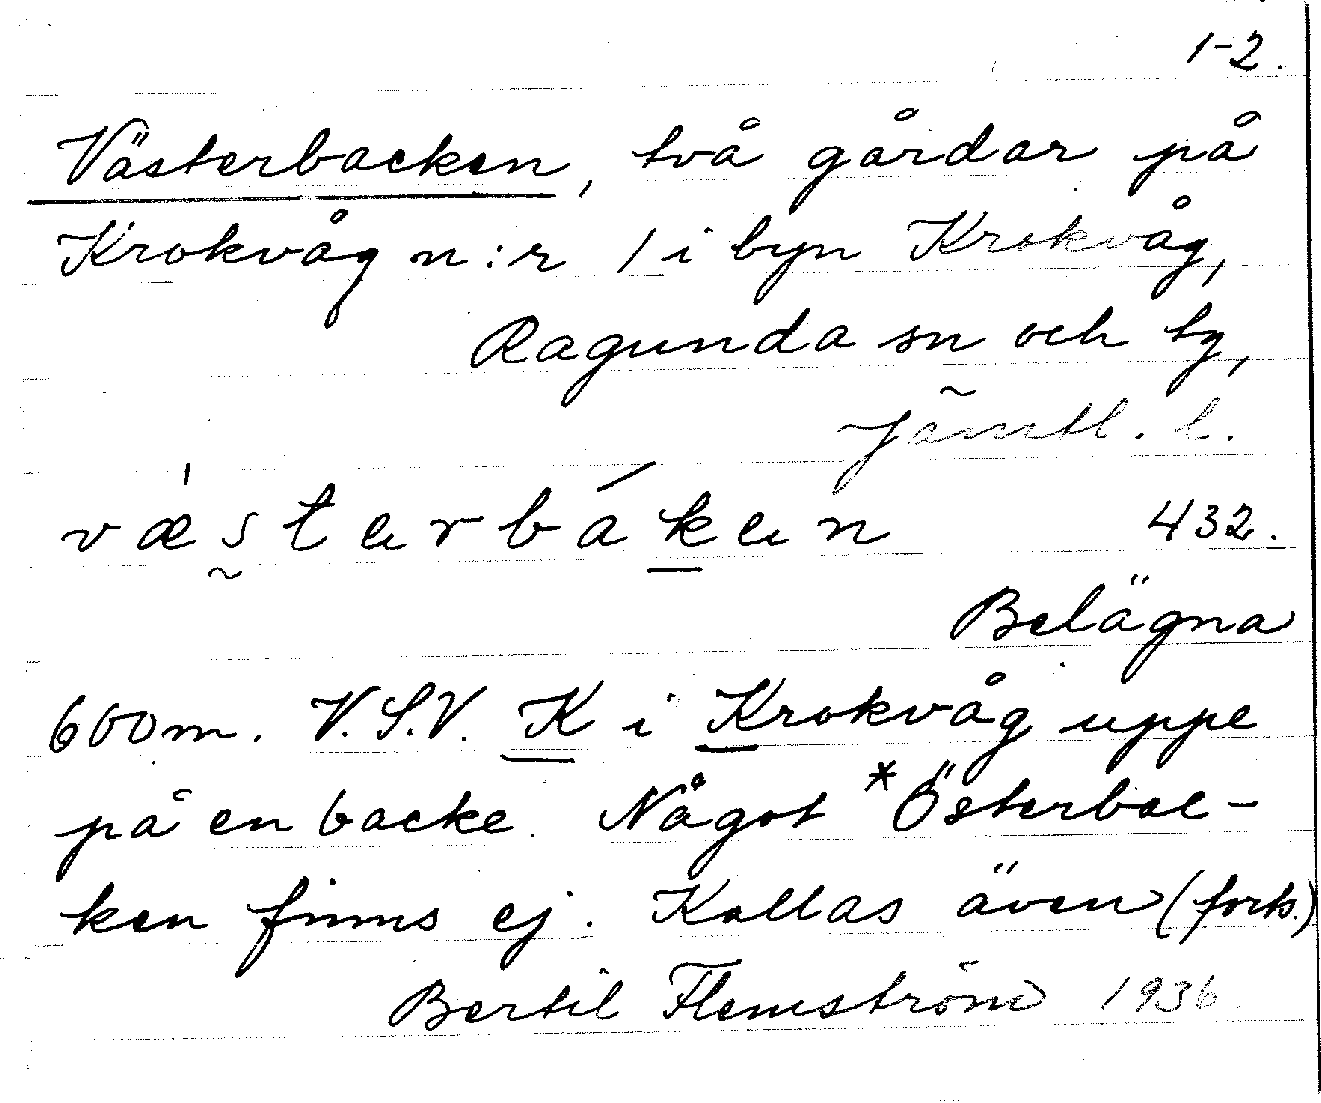 1-2.
Västerbacken, två gårdar på
Krokvåg n:r 1 i byn Krokvåg,
Ragunda sn och tg,
Jämtl. l.
væsterbáken 432.
Belägna
600m. V.S.V. K i Krokvåg uppe
på en backe. Något *Österbac-
ken finns ej. Kallas även (forts.)
Bertil Flemström 1936